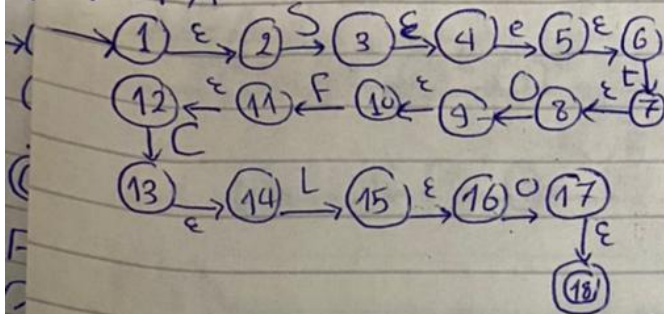 1 ε 2 S 3 ε 4 e 5 ε 6
E
12 ε 11 F 10 ε 9 O 8 ε 7
C
13 ε 14 L 15 ε 16 O 17
ε
18